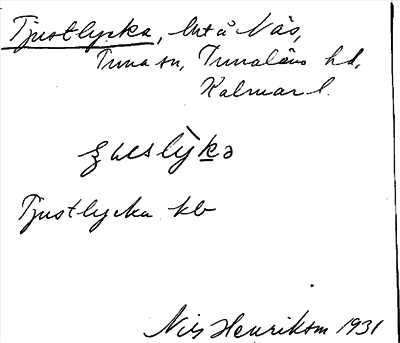 Tjustlycka, lht å Näs,
Tuna sn, Tunaläns hd,
Kalmar l.
Tjustlycka kb
Nils Henrikson 1931